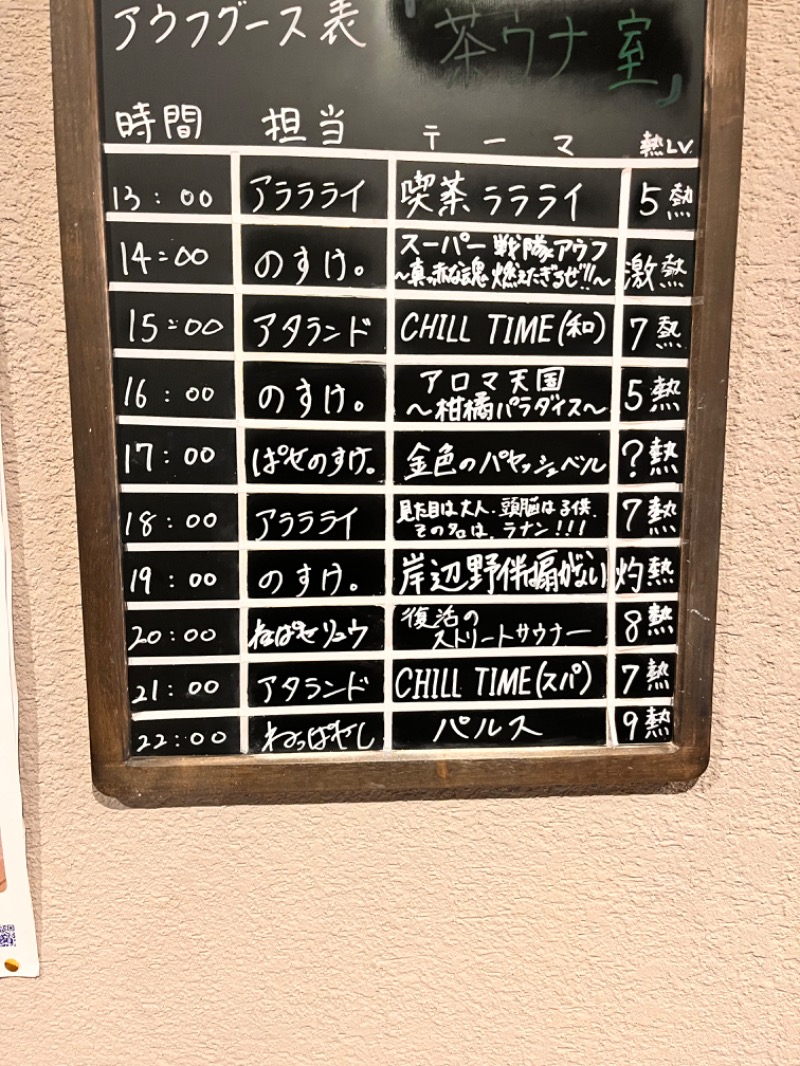 アウフグース表
「茶ウナ室」
時間 担当 テーマ 熱LV.
13:00 アララライ 喫茶ラララライ 5熱
14:00 のすけ。 スーパー戦隊アウフ
~真っ赤な魂燃えたぎるぜ!!~ 激熱
15:00 アタランド CHILL TIME(和) 7熱
16:00 のすけ。 アロマ天国
~柑橘パラダイス~ 5熱
17:00 ぱせのすけ。 金色のパヤッシュベル ?熱
18:00 アララライ 見た目は大人、頭脳は子供、
その名は、ラナン!!! 7熱
19:00 のすけ。 岸辺野伴は扇がない 灼熱
20:00 ねぱせリュウ 復活の
ストリートサウナー 8熱
21:00 アタランド CHILL TIME(スパ) 7熱
22:00 ねっぱせし パルス 9熱